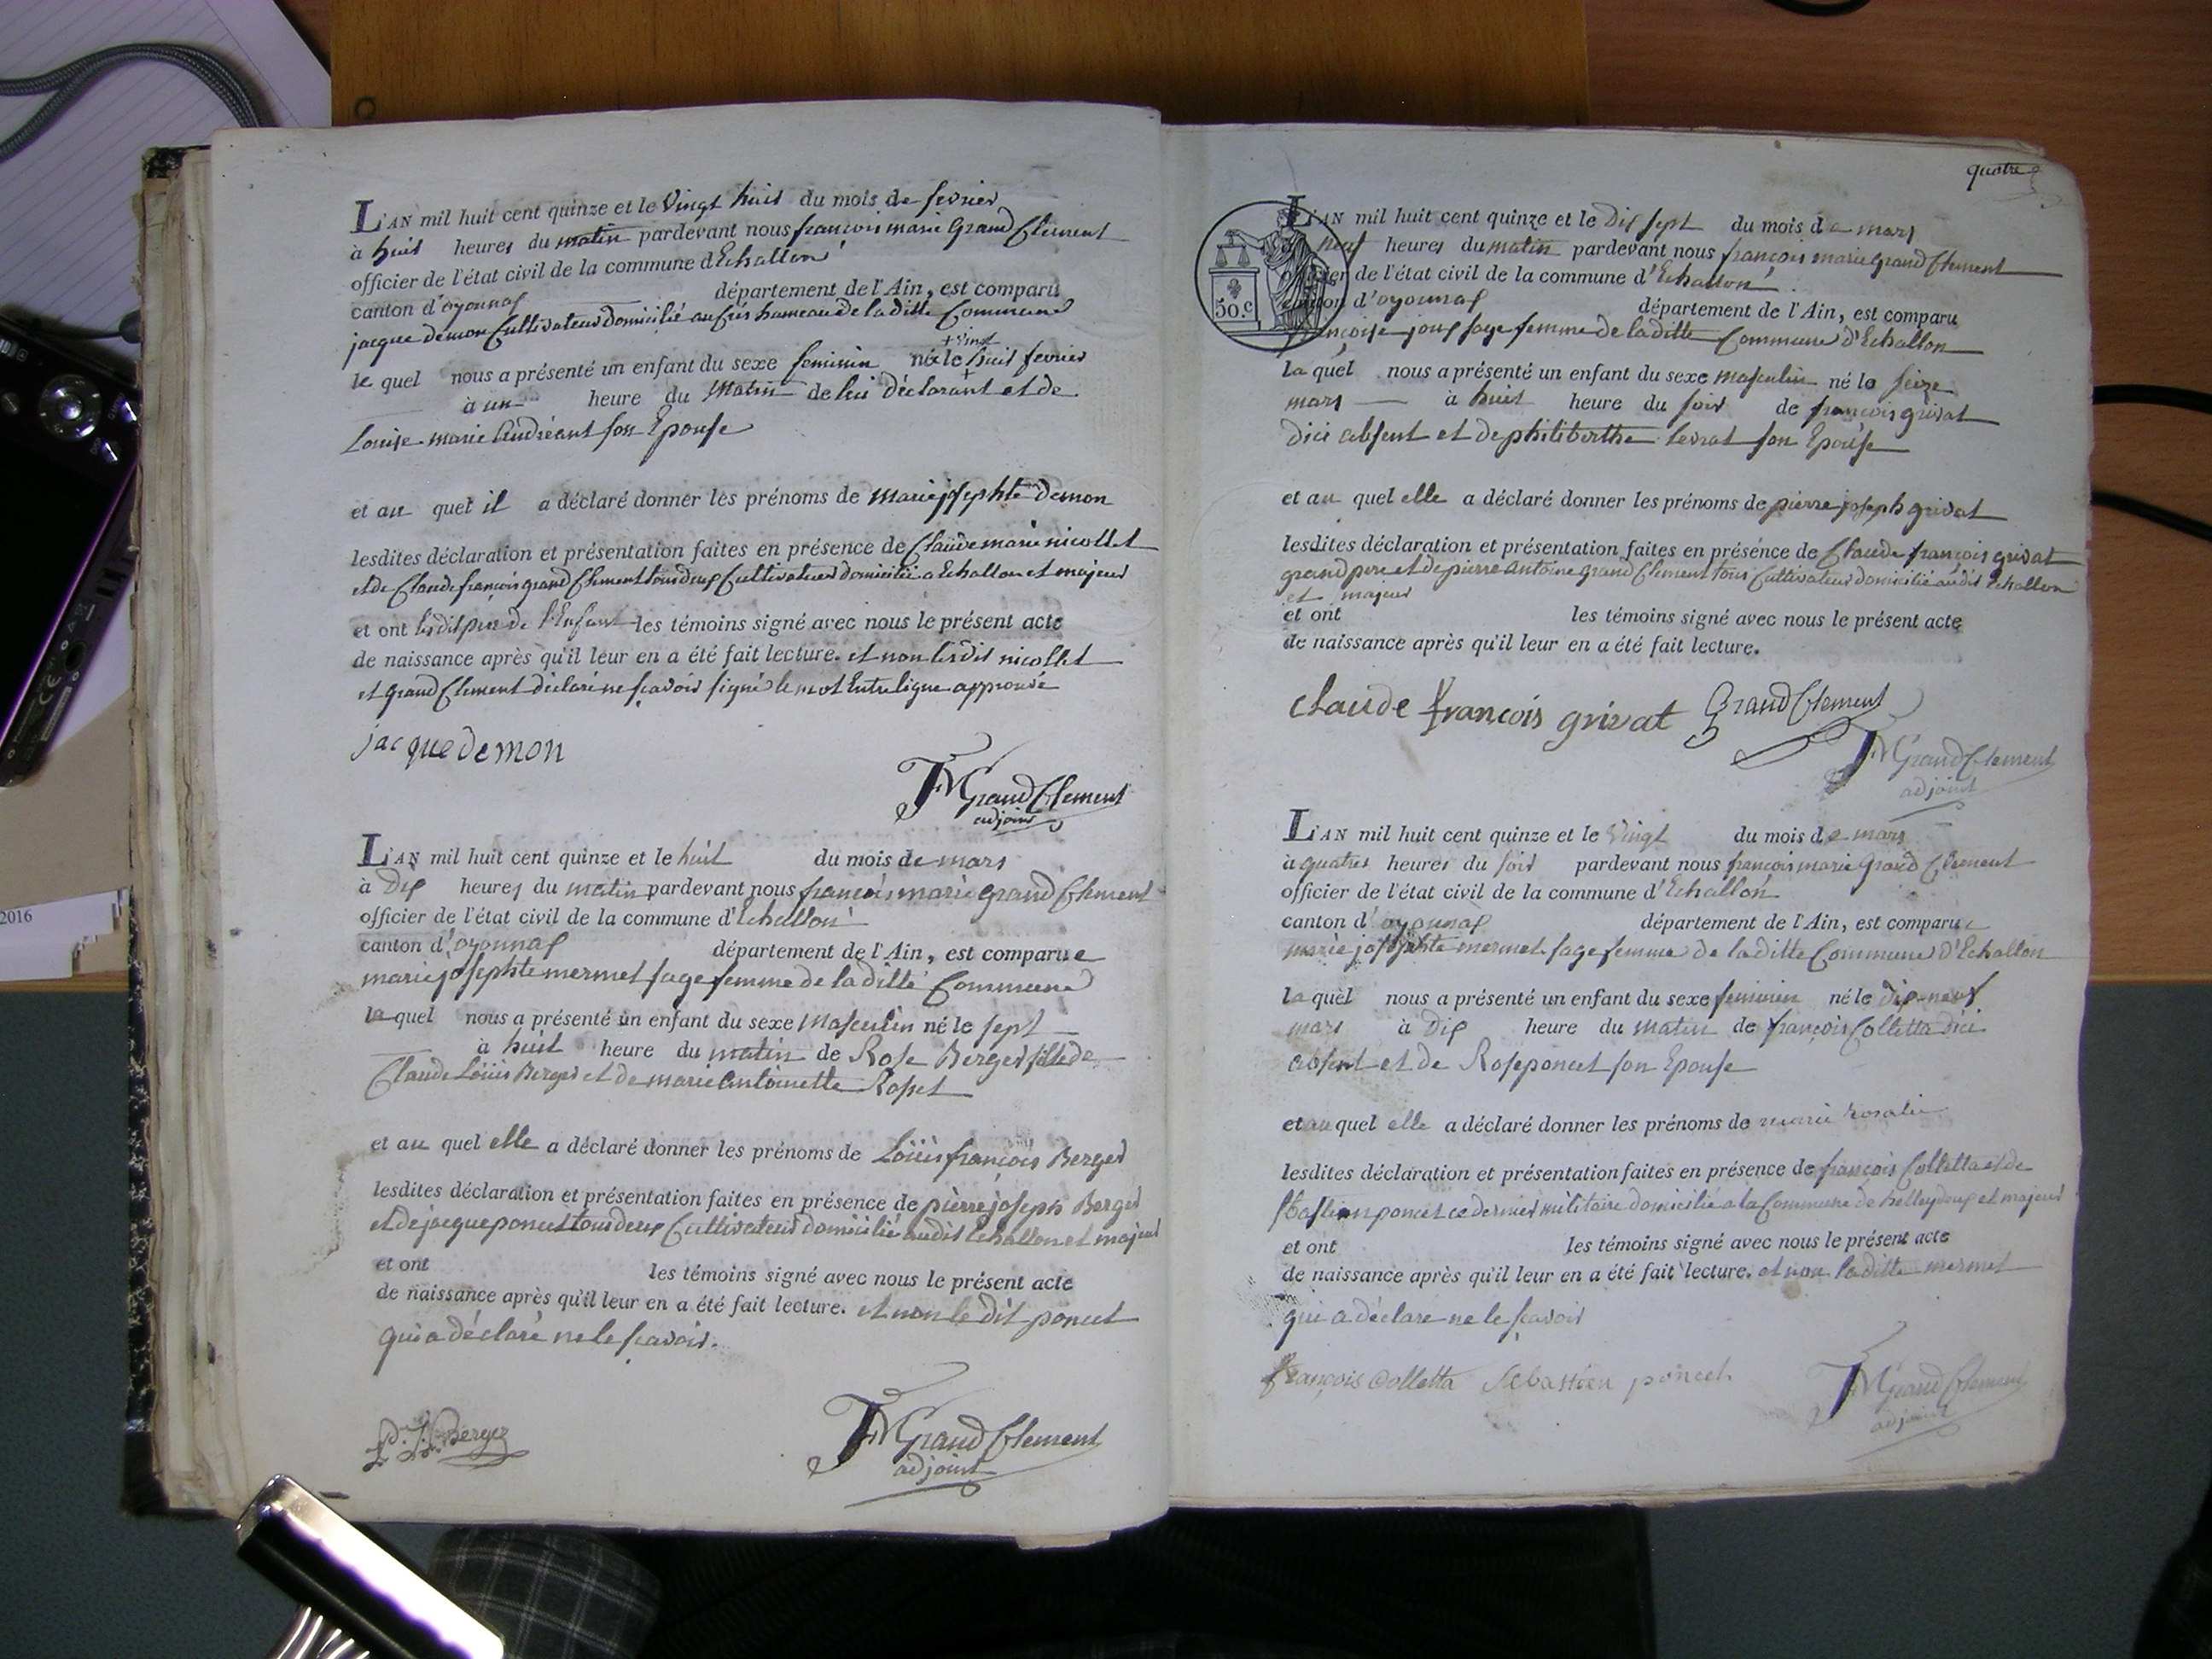 L'AN mil huit cent quinze et le Vingt huit du mois de fevrier
à huit heures du matin pardevant nous francois marie Grand Clement
officier de l'état civil de la commune d'Echallon
canton d'oyonnaf département de l'Ain, est comparu
jacque demon Cultivateur domicilié au Crés hameau de la ditte Commune
le quel nous a présenté un enfant du sexe feminin né le + vingt huit fevrier
à un heure du Matin de lui déclarant et de
Louise marie Andréant son Epouse
et au quel il a déclaré donner les prénoms de Marie josephte demon
lesdites déclaration et présentation faites en présence de Claude marie nicollet
et de Claude françois grand Clement tous deux Cultivateur domicilié a Echallon et majeur
et ont ledit pere de l'Enfant les témoins signé avec nous le présent acte
de naissance après qu'il leur en a été fait lecture. et non lesdit nicollet
et grand Clement déclaré ne scavoir signé le mot Entreligne approuvé
jacque demon
FM Grand Clement
adjoint
L'AN mil huit cent quinze et le huit du mois de mars
à Dix heures du matin pardevant nous francois marie grand Clement
officier de l'état civil de la commune d'Echallon
canton d'oyonnaf département de l'Ain, est comparue
marie josephte mermet sage femme de la ditte Commune
la quel nous a présenté un enfant du sexe Masculin né le sept
à huit heure du matin de Rose Berger fille de
Claude Louis Berger et de marie Antoinette Rosset
et au quel elle a déclaré donner les prénoms de Louis françois Berger
lesdites déclaration et présentation faites en présence de pierre joseph Berger
et de jacque poncet tous deux Cultivateur domicilié audit Echallon et majeur
et ont les témoins signé avec nous le présent acte
de naissance après qu'il leur en a été fait lecture. et non le dit poncet
qui a déclaré ne le scavoir.
P. J. Berger
FM Grand Clement
adjoint
quatre
50.c
L'AN mil huit cent quinze et le Dix sept du mois de mars
neuf heures du matin pardevant nous françois marie grand Clement
officier de l'état civil de la commune d'Echallon
canton d'oyonnaf département de l'Ain, est comparu
françoise joux sage femme de la ditte Commune d'Echallon
la quel nous a présenté un enfant du sexe masculin né le seize
mars à huit heure du soir de françois grivat
dici absent et de philiberthe levrat son Epouse
et au quel elle a déclaré donner les prénoms de pierre joseph grivat
lesdites déclaration et présentation faites en présence de Claude françois grivat
grand pere et de pierre Antoine grand Clement tous Cultivateur domicilié audit Echallon
et majeur
et ont les témoins signé avec nous le présent acte
de naissance après qu'il leur en a été fait lecture.
claude françois grivat Grand Clement
FM Grand Clement
adjoint
L'AN mil huit cent quinze et le Vingt du mois de mars
à quatres heures du soir pardevant nous françois marie Grand Clement
officier de l'état civil de la commune d'Echallon
canton d'oyonnaf département de l'Ain, est comparue
marie josephte mermet sage femme de la ditte Commune d'Echallon
la quel nous a présenté un enfant du sexe feminin né le dix-neuf
mars à Dix heure du matin de françois Colletta dici
absent et de Rose poncet son Epouse
et au quel elle a déclaré donner les prénoms de marie rosalie
lesdites déclaration et présentation faites en présence de françois Colletta et de
poncet ce dernier militaire domicilié a la Commune de belleydoux et majeur
et ont les témoins signé avec nous le présent acte
de naissance après qu'il leur en a été fait lecture. et non la ditte mermet
qui a déclare ne le scavoir
françois Colletta Sebastien poncet
FM Grand Clement
adjoint
2016